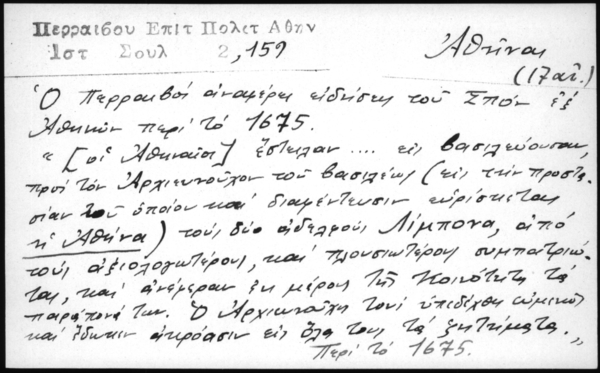 Περραιβου Επιτ Πολετ Αθην
1στ Σουλ 2,159
Ἀθῆναι
(17 αἰ.)
Ὁ Περραιβός ἀναφέρει εἰδήσεις τοῦ Σπόν ἐξ
Ἀθηνῶν περί τό 1675.
"[οἱ Ἀθηναῖοι] ἔστειλαν .... εἰς βασιλεύουσαν,
πρός τόν Ἀρχιευνοῦχον τοῦ βασιλέως (εἰς τήν προστα-
σίαν τοῦ ὁποίου καί διαφέντευσιν εὑρίσκεται
ἡ Ἀθήνα) τούς δύο ἀδελφούς Λίμπονα, ἀπό
τούς ἀξιολογωτέρους, καί πλουσιωτέρους συμπατριώ-
τας, καί ἀνέφεραν ἐκ μέρους τῆς Κοινότητος τά
παράπονά των. Ὁ Ἀρχιευνοῦχος τούς ὑπεδέχθη εὐμενῶς
καί ἔδωκεν ἀκρόασιν εἰς ὅλα τους τά ζητήματα."
Περί τό 1675.